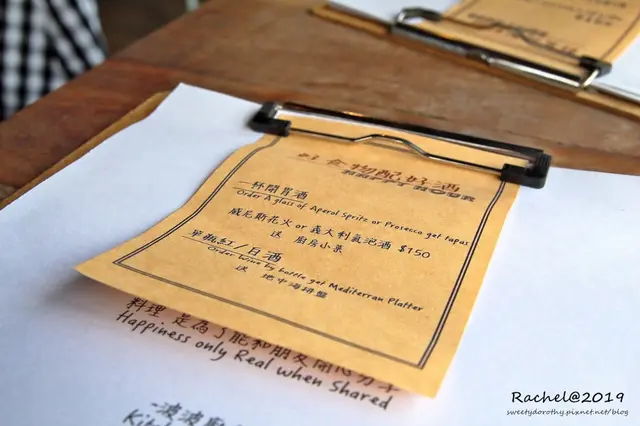 好食物配好酒
HAPPY HOUR
一杯開胃酒
Order A glass of Aperol Spritz or Prosecco get tapas
威尼斯花火 or 義大利氣泡酒 $150
送 廚房小菜
單瓶紅/白酒
Order wine by bottle get Mediterran Platter
送 地中海拼盤
料理 是為了能和朋友開心分享
Happiness only Real when Shared
Rachel@2019
sweetydorothy.pixnet.net/blog